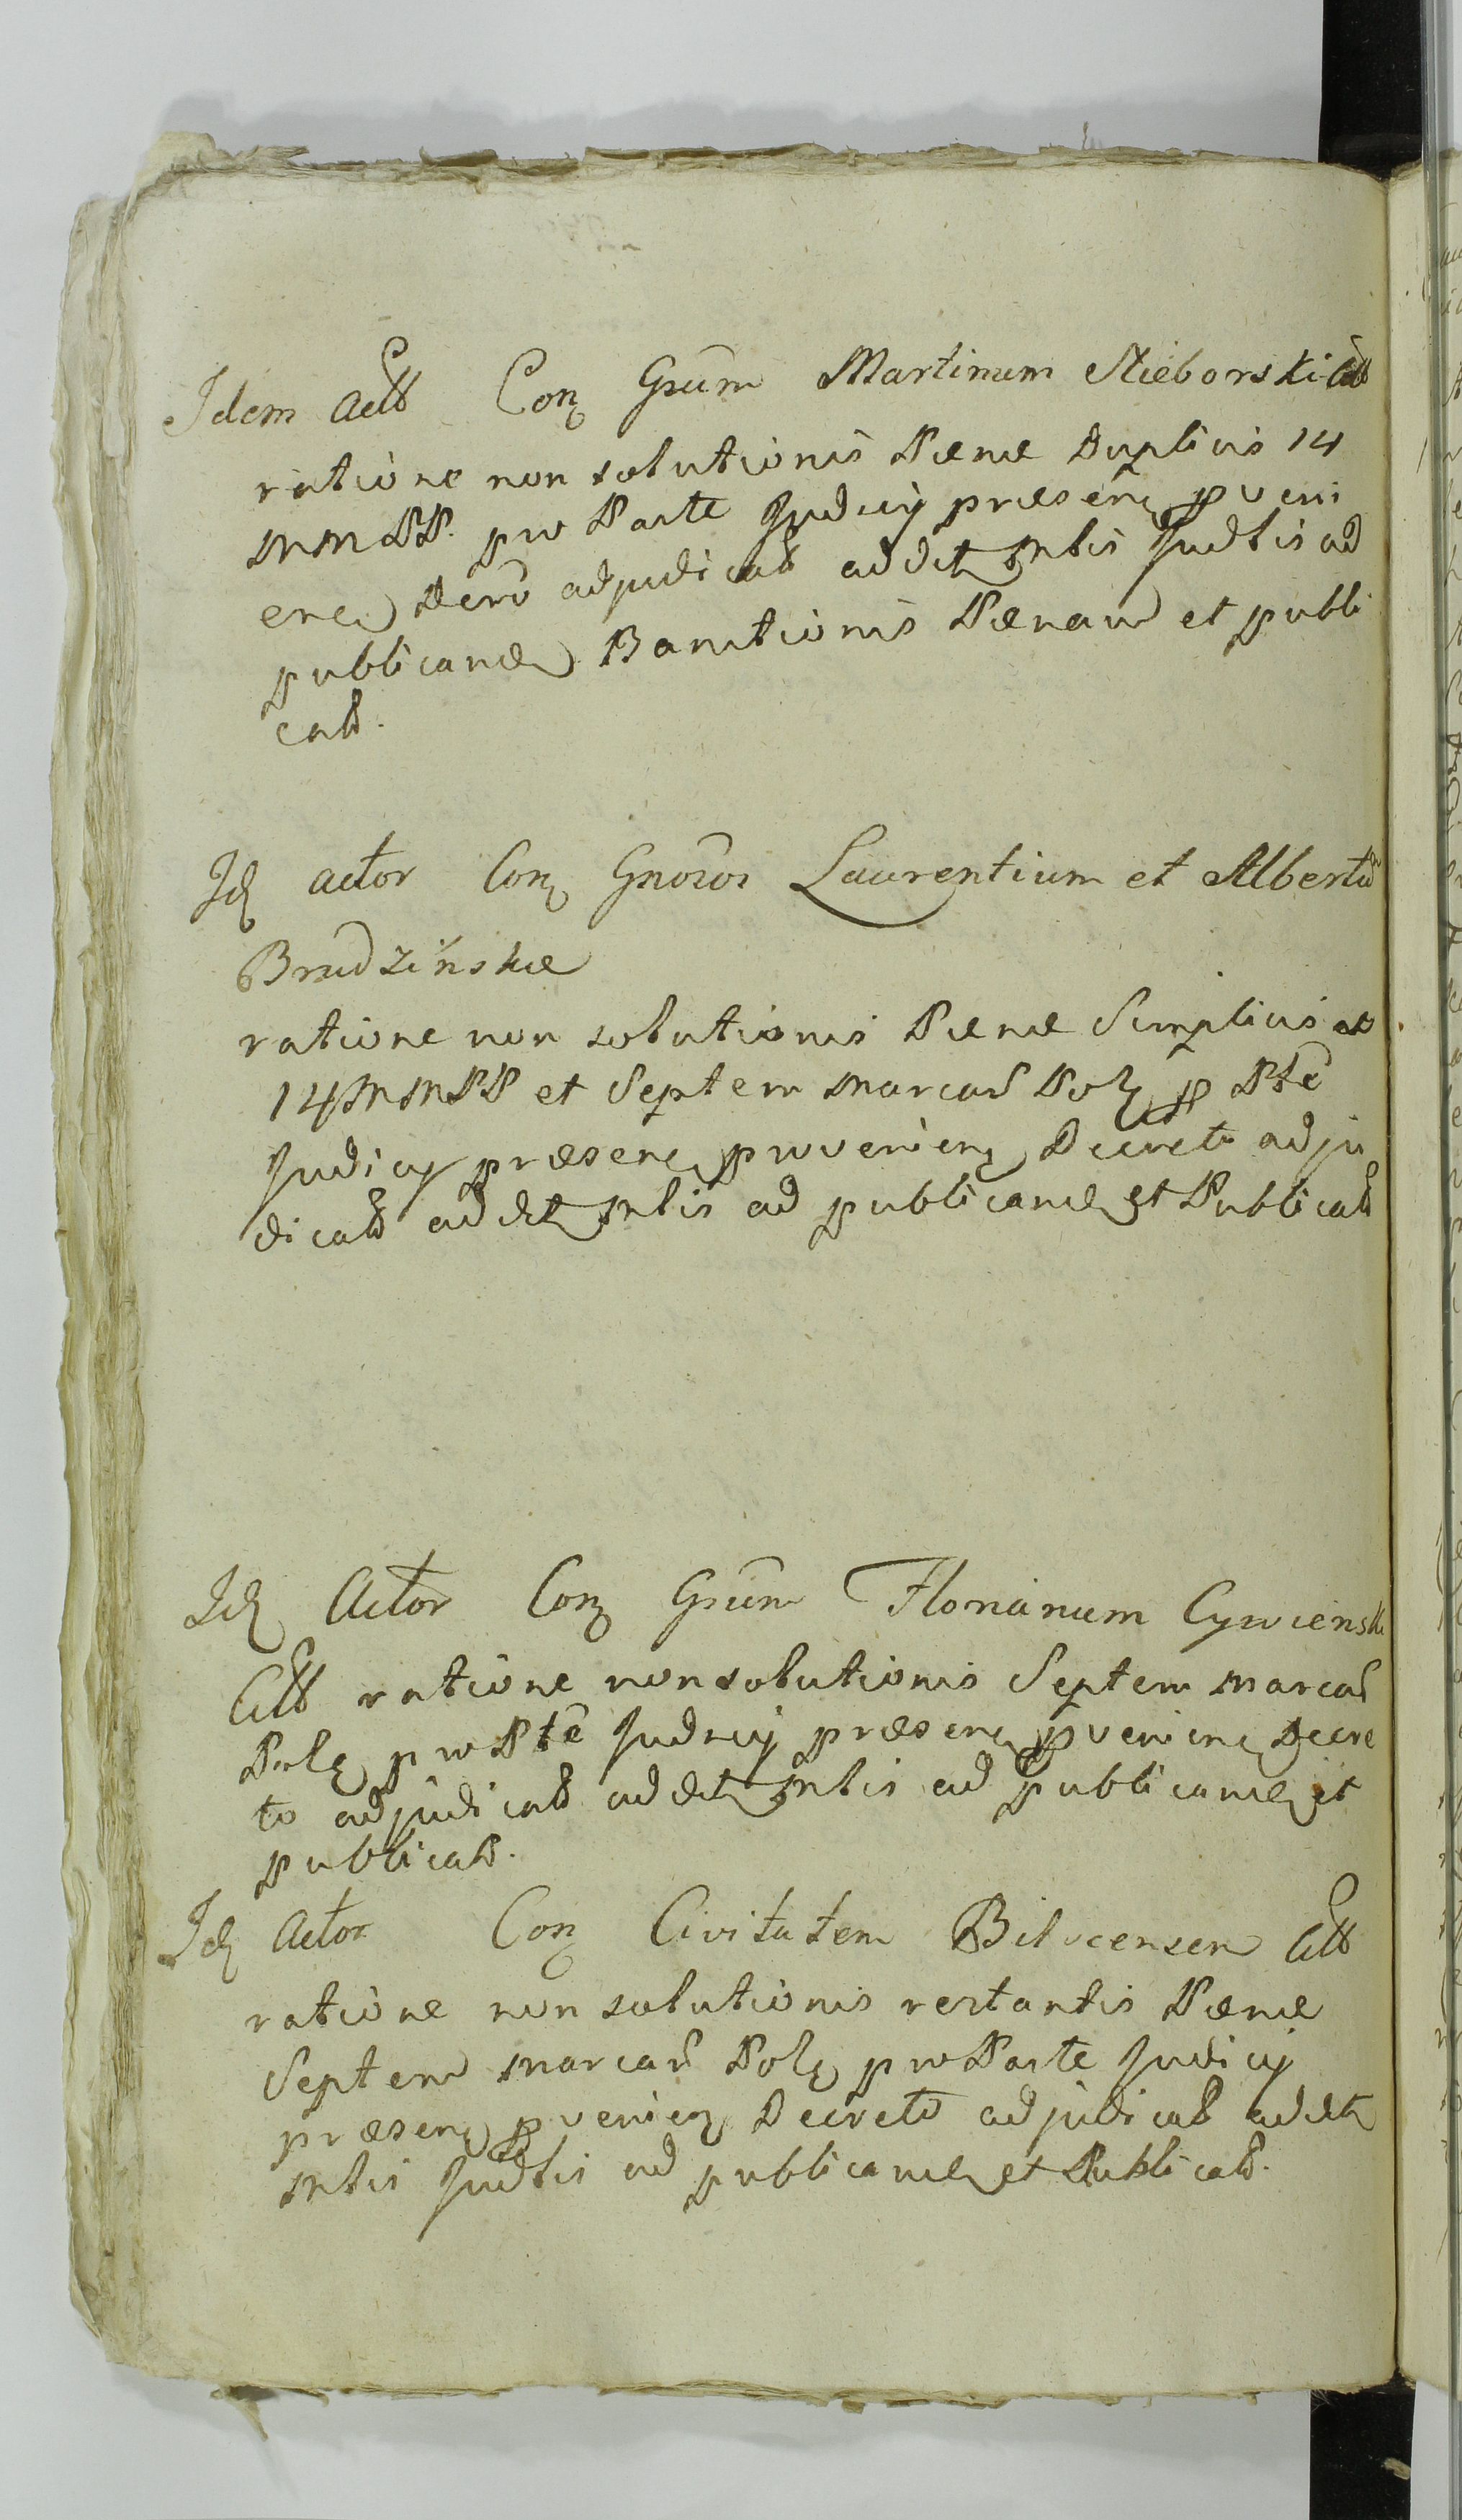 Idem Actt Con Gsum Martinum Nieborski Citt
ratione non solutionis Pænæ Duplicis 14
MMPP. pro Parte Judicij præsen pveni
enc Decro adjudicatt addit Mtis Judtis ad
publicand Banitionis Pænam et publi
catt.
Id actor Con Gnosos Laurentium et Albertu
Brudzińskie
ratione non solutionis Pænæ Simplicis
14 MMPP et Septem Marcar Pol p Pte
Judicij præsen provenien Decreto adju
dicatt addit Mtis ad publicand et Publicatt
Id Actor Con Gsum Florianum Cywiensk
Citt ratione non solutionis Septem Marcar
Pol pro Pte Judicij præsen pvenien Decre
to adjudicatt addit Mtis ad publicand et
publicatt.
Id Actor Con Civitatem Bilscensem Citt
ratione non solutionis restantis Pænæ
Septem Marcar Pol pro Parte Judicij
præsen pvenien Decreto adjudicatt addit
Mtis Judtis ad publicand et Publicatt.